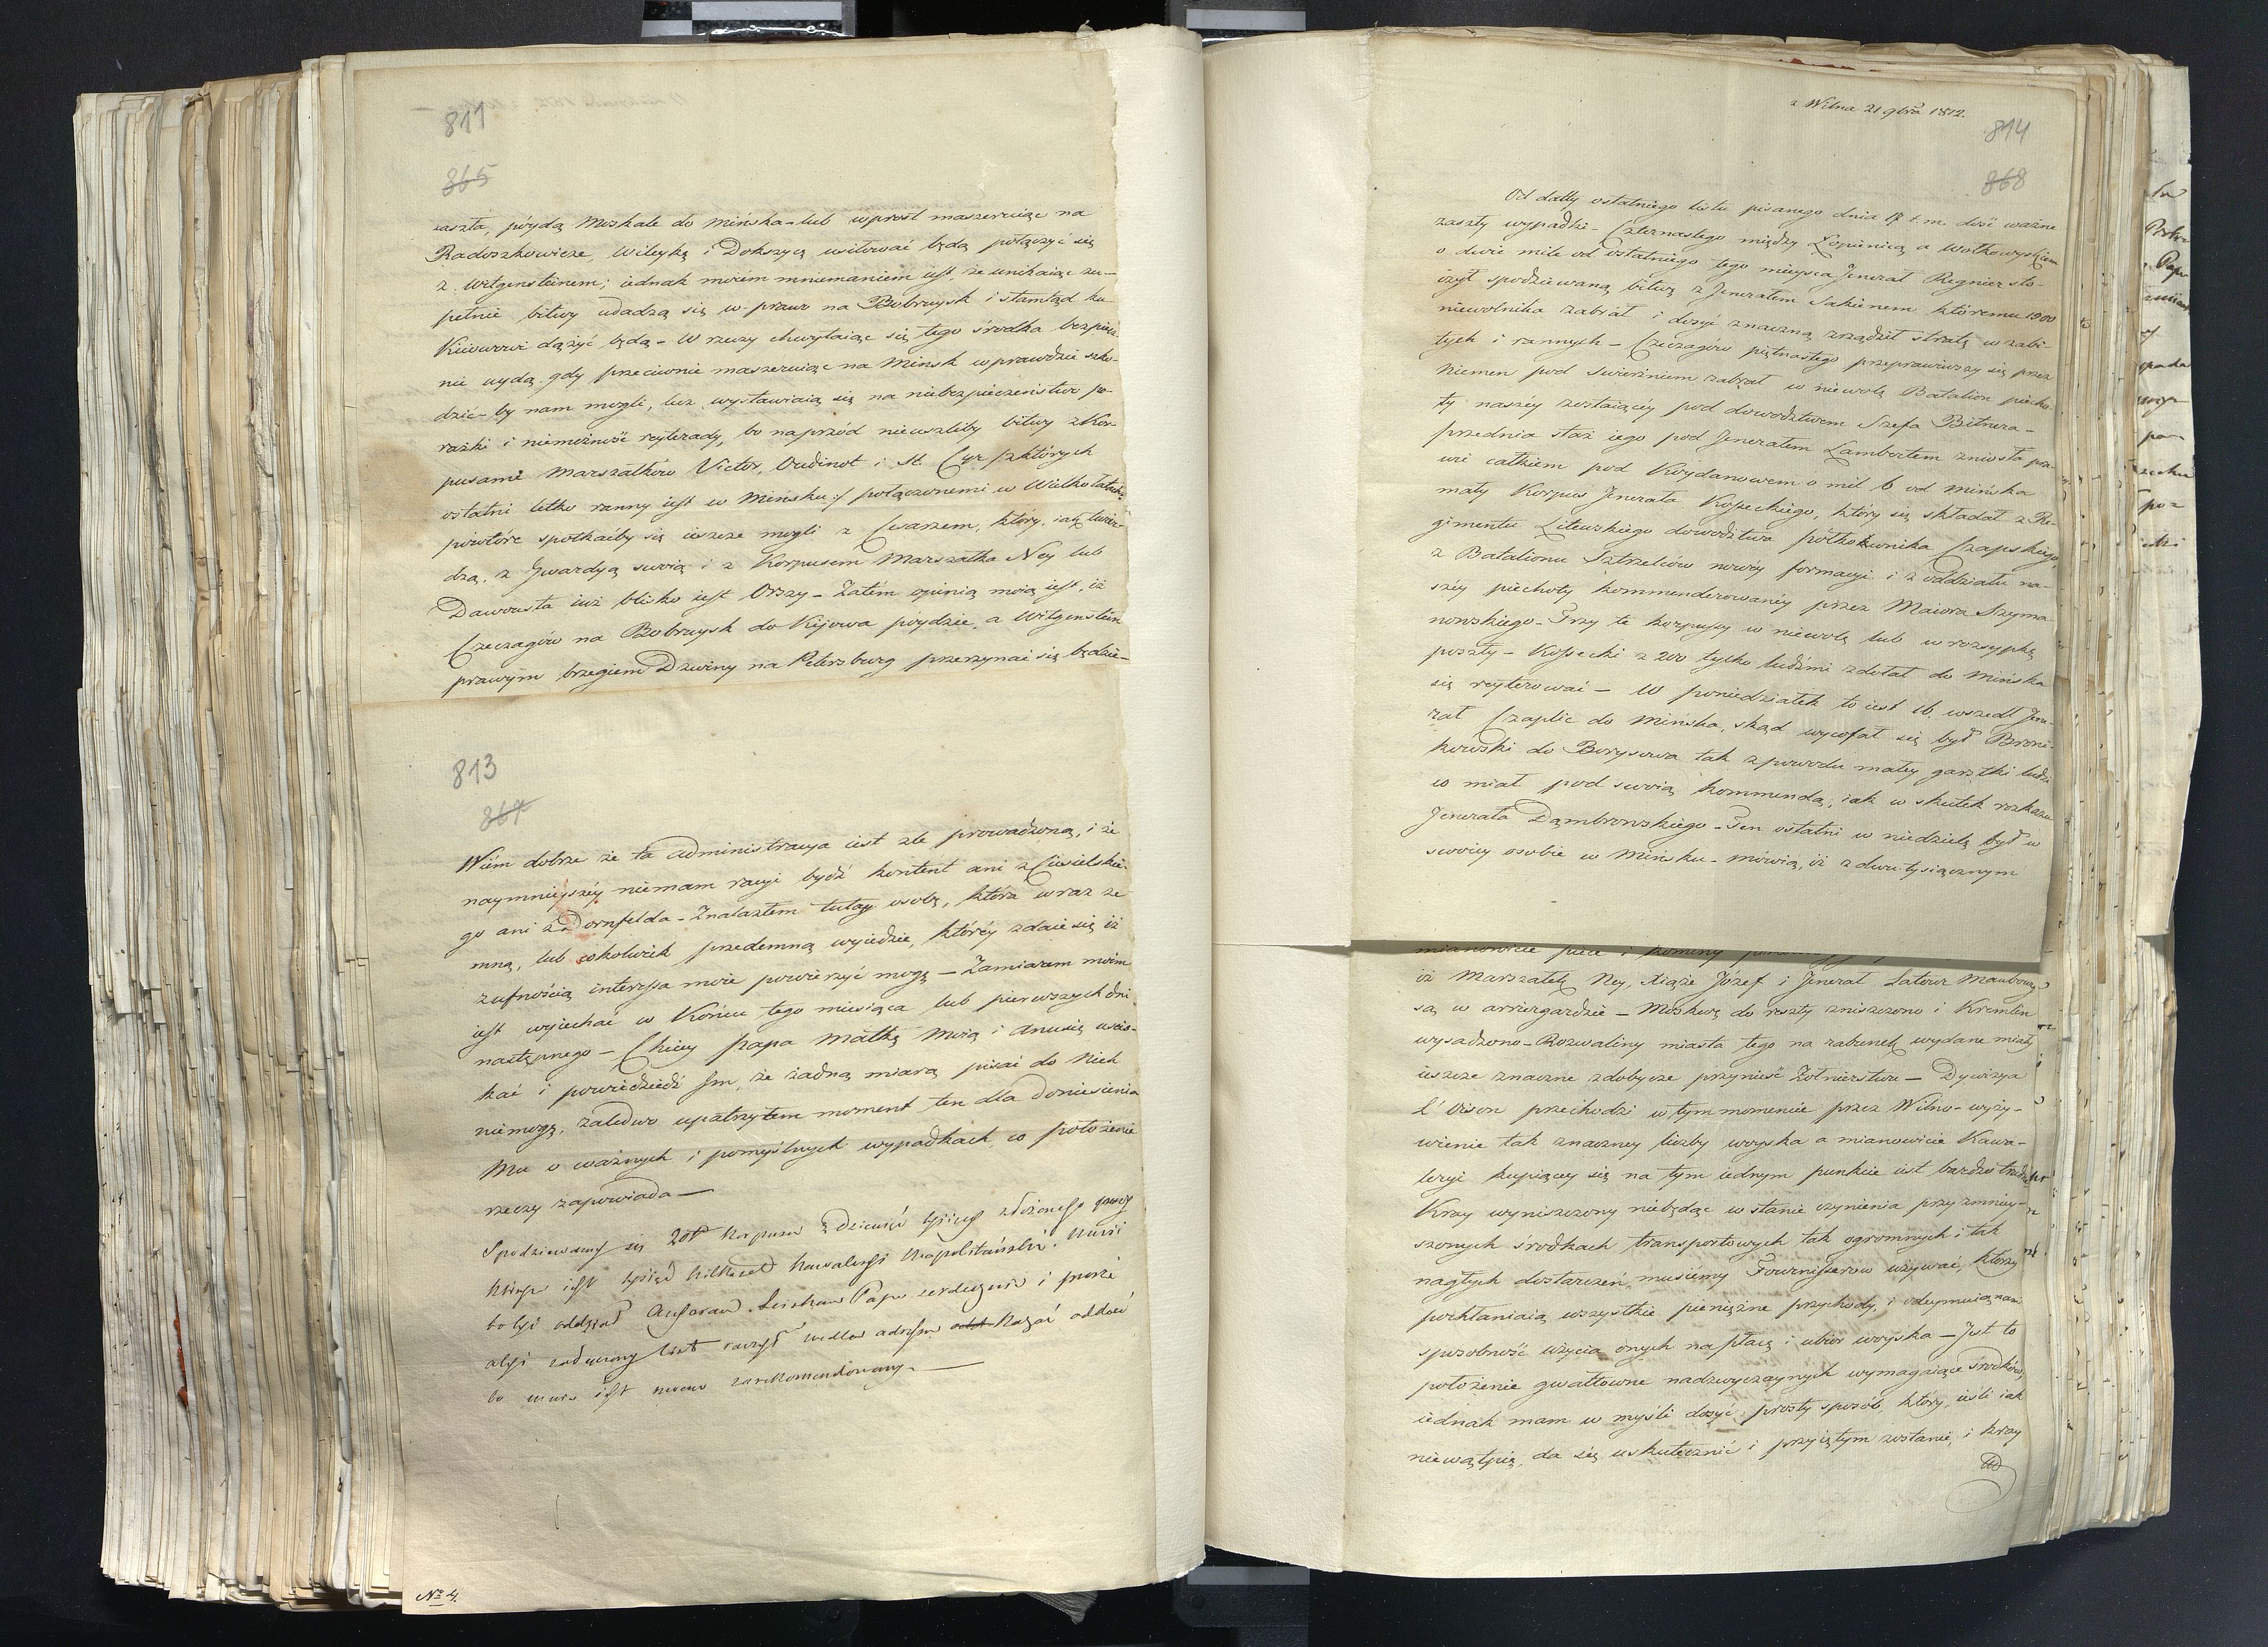 811
865
zaszła, póydą Moskale do Mińska - lub wprost maszeruiąc na
Radoszkowicze, Wileykę i Dokszycę usiłować będą połączyć się
z Witgensteinem; iednak moiém mniemaniem iest, że unikaiąc zu-
pełnie bitwy udadzą się w prawo na Bobruysk i stamtąd ku
Kiiowowi dążyć będą - W rzeczy chwytaiąc się tego środka bezpiecz-
nie uydą, gdy przeciwnie maszeruiąc na Mińsk wprawdzie szko-
dzić-by nam mogli, lecz wystawiaią się na niebezpieczeństwo po-
rażki i niemożność reyterady, bo naprzód nieuszliby bitwy z Kor-
pusami Marszałków Victor, Oudinot i St. Cyr /:z których
ostatni letko ranny iest w Mińsku:/ połączonemi w
powtóre spotkaćby się ieszcze mogli z Cesarzem, który, iak twier-
dzą, z Gwardyą swoią i z Korpusem Marszałka Ney lub
Davousta iuż blisko iest Orszy - Zatém opinią moią iest, iż
Czeczagów na Bobruysk do Kijowa póydzie, a Witgenstein
prawym brzegiem Dzwiny na Petersburg przerzynać się będzie -
813
867
Wiém dobrze że ta administracya iest źle prowadzoną, i że
naymnieyszéy niemam racyi bydź kontent ani z Ciesielskie-
go ani z Dornfelda - Znalazłem tutay osobę, która wraz ze
mną, lub cokolwiek przedemną wyiedzie, któréy zdaie się iż
z ufnością interessa moie powierzyć mogę - Zamiarem moim
iest wyiechać w Końcu tego miesiąca lub pierwszych dni
następnego - Chciey Papa Matkę moią i Anusię uścis-
kać i powiedzieć Im, że żadną miarą pisać do Nich
niemogę, zaledwo upatrzyłem moment ten dla doniesienia
Mu o ważnych i pomyślnych wypadkach, co położenie
rzeczy zapowiada -
Spodziewamy się Korpusu z Dziewięć tysięcy złożonego
iest tysiąc kilkaset Kawaleryi Neapolitańskiéy.
oddział Papę serdecznie i proszę
list wedle adressu kazać oddać
bo iest mocno zarekomendowany. -
No 4.
z Wilna 21 9bra 1812.
814
868
Od datty ostatniego listu pisanego dnia 17 t. m. dość ważne
zaszły wypadki - Czternastego między Łopienicą a Wołkowyskiem
o dwie mile od ostatniego tego mieysca Jenerał Regnier sto-
czył spodziewaną bitwę z Jenerałem Sakienem któremu 1900
niewolnika zabrał i dosyć znaczną zrządził stratę w zabi-
tych i rannych - Czeczagów piętnastego przeprawiwszy się przez
Niemen pod Swierźniem zabrał w niewolę Batalion piecho-
ty naszéy zostaiącéy pod dowodztwem Szefa Bitnera -
Przednia straż iego pod Jenerałem Lambertem zniosła pra-
wie całkiem pod Koydanowem o mil 6 od Mińska
mały Korpus Jenerała Kosseckiego, który się składał z Re-
gimentu Litewskiego dowodztwa półkownika Czapskiego,
z Batalionu Sztrzelców nowéy formacyi i z oddziału na-
széy piechoty kommenderowanéy przez Maiora Szyma-
nowskiego - Trzy te korpusy w niewolę lub w rozsypkę
poszły - Kossecki z 200 tylko ludźmi zdołał do Mińska
się reyterować - W poniedziałek to iest 16. wszedł Jene-
rał Czaplic do Mińska, skąd wycofał się był Broni-
kowski do Borysowa tak z powodu małey garstki ludzi
co miał pod swoią kommendą, iak w skutek rozkazu
Jenerała Dąmbrowskiego - Ten ostatni w niedzielę był w
swoiey osobie w Mińsku - mówią, iż z dwu-tysiącznym
mianowicie piece i kominy
iż Marszałek Ney, Xiąże Józef i Jenerał Latour Maubourg
są w arriergardzie - Moskwę do reszty zniszczono i Kremlin
wysadzono - Rozwaliny miasta tego na rabunek wydane miały
ieszcze znaczne zdobycze przynieść żołnierstwu - Dywizya
L'Oison przechodzi w tym momencie przez Wilno - wyży-
wienie tak znaczney liczby woyska a mianowicie Kawa-
leryi kupiącey się na tym iednym punkcie iest bardzo trudne
Kray wyniszczony niebędąc w stanie czynienia przy zmniey-
szonych środkach transportowych tak ogromnych i tak
nagłych dostarczeń, musiémy Fournisserów używać, którzy
pochłaniaią wszystkie pieniężne przychody, i odeymuią nam
sposobność użycia onych na płacę i ubiór woyska - Jest to
położenie gwałtowne nadzwyczaynych wymagaiące środków,
iednak mam w myśli dosyć prosty sposób, który, ieśli iak
niewątpię, da się uskutecznić i przyiętym zostanie, i kray